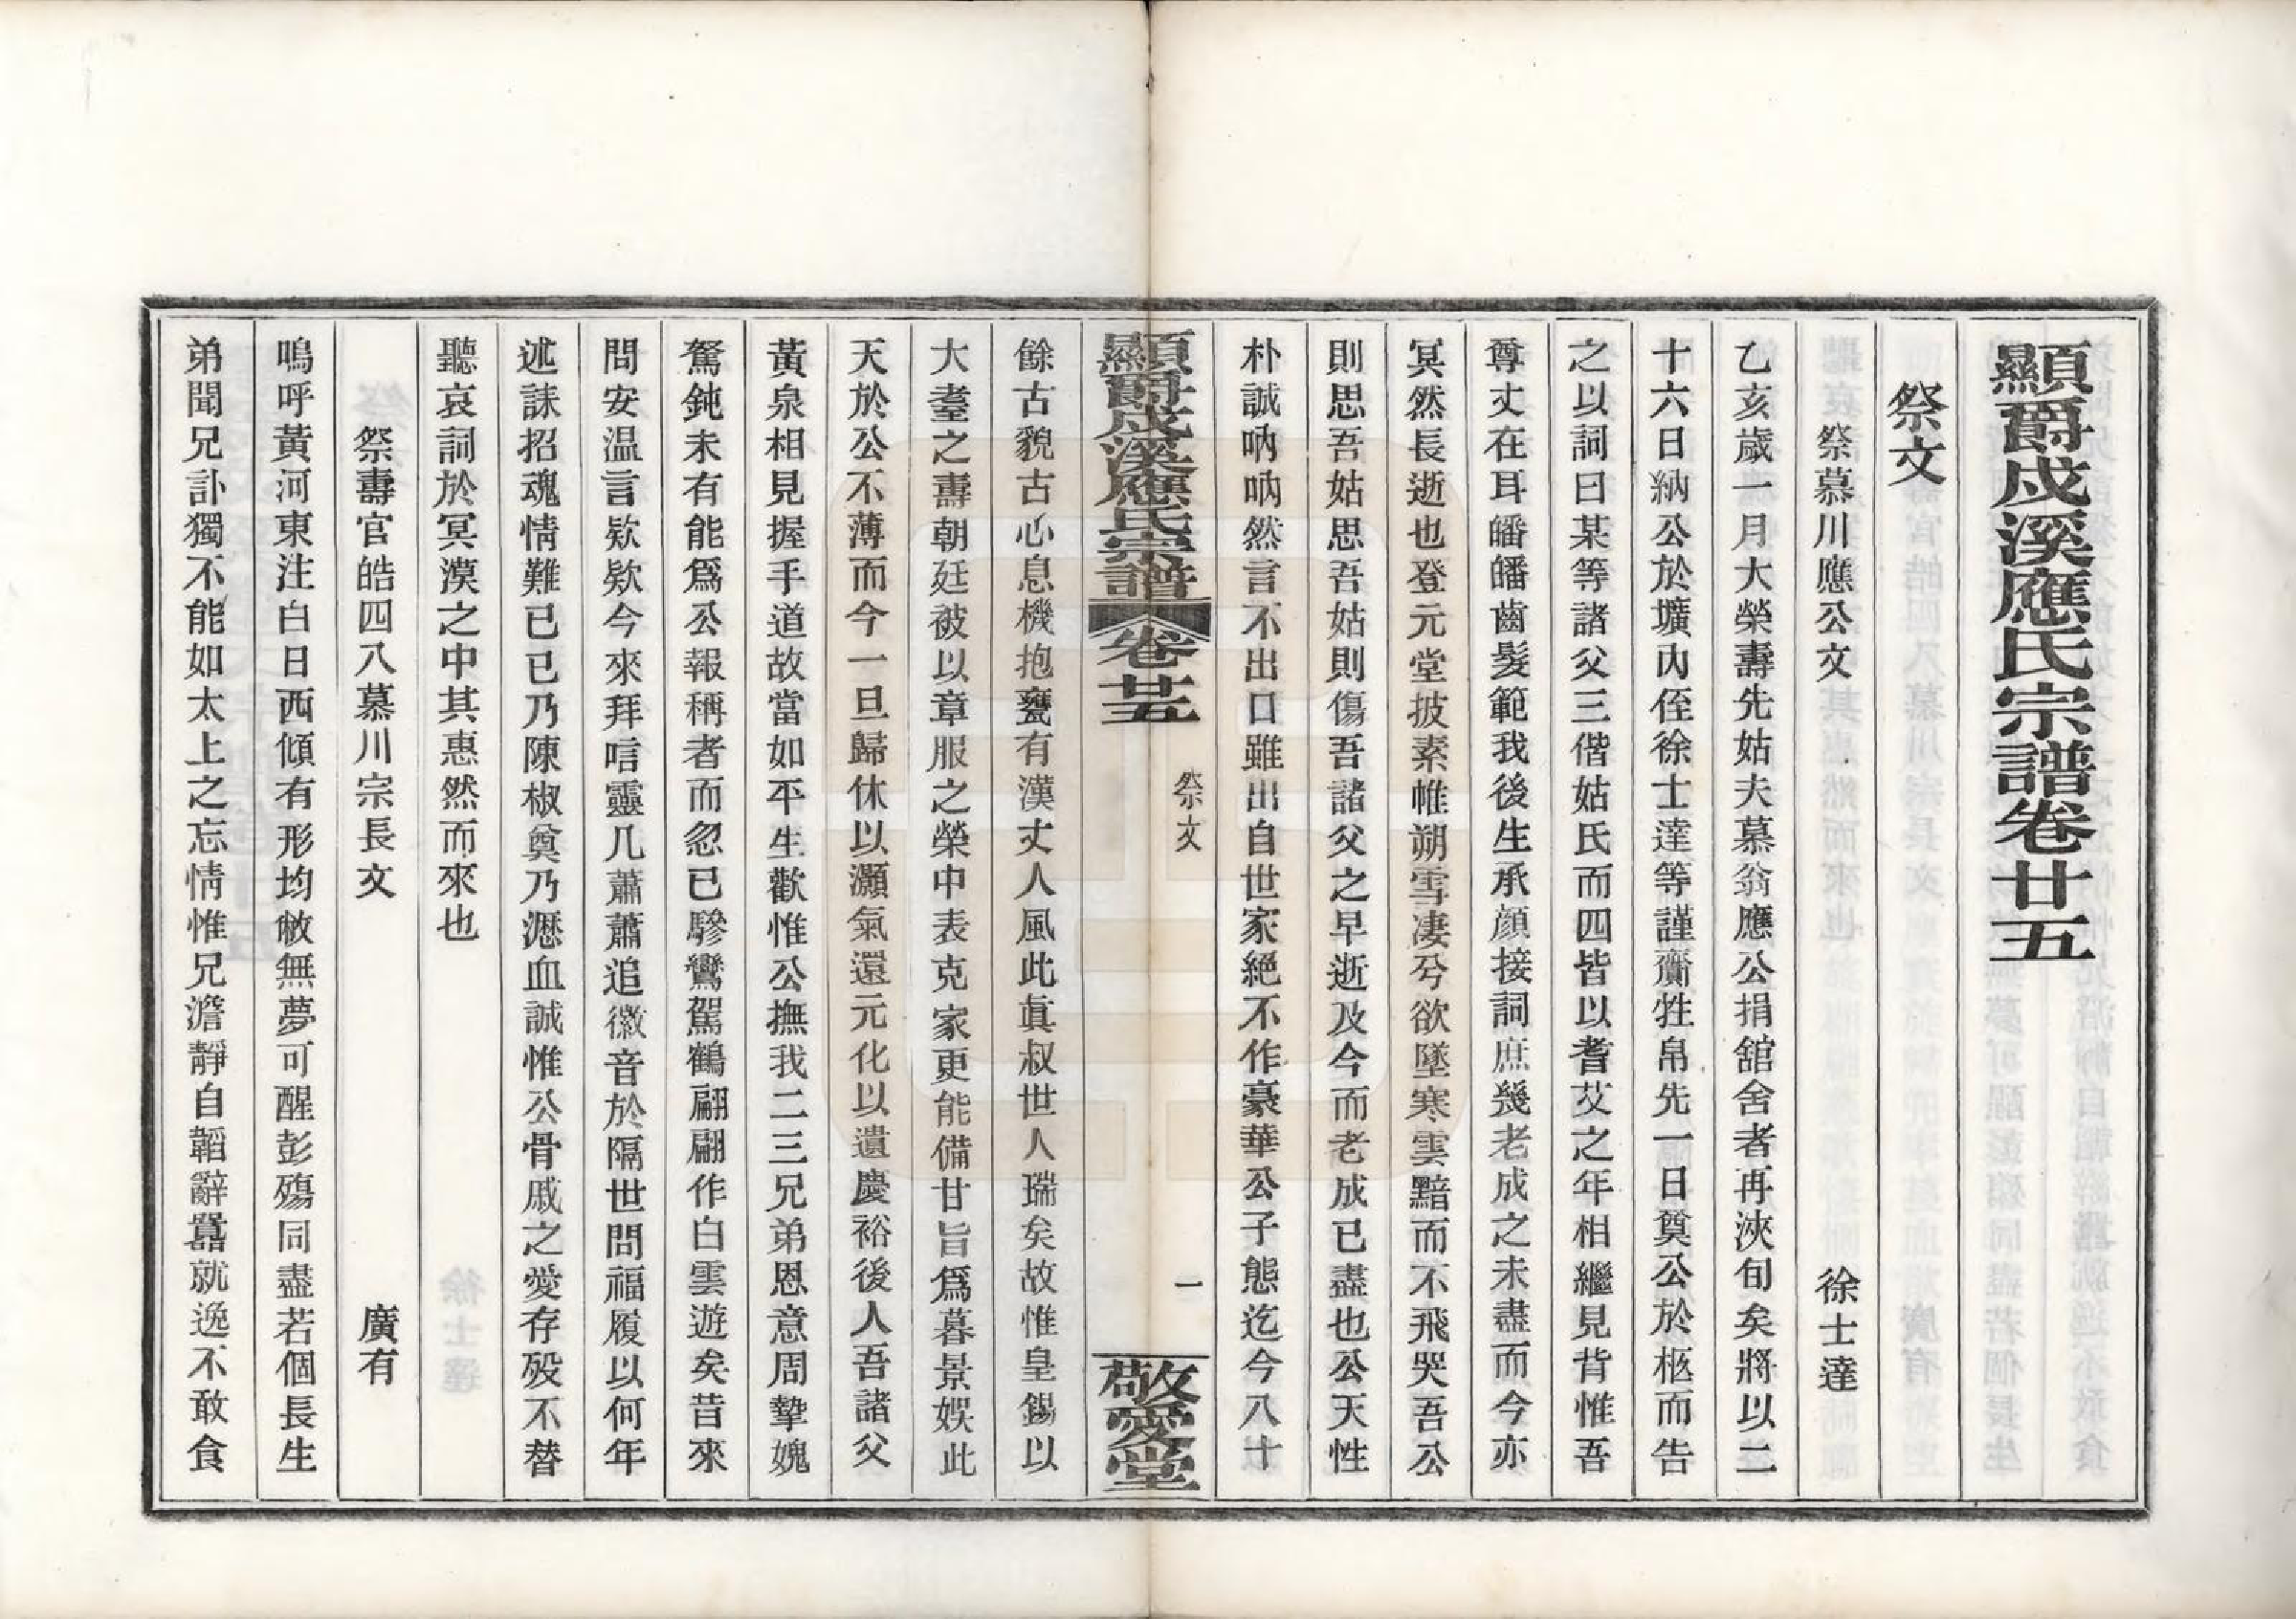 顯爵戍溪應氏宗譜卷廿五
祭文
祭慕川應公文　徐士達
乙亥歲一月大榮壽先姑夫慕翁應公捐舘舍者再浹旬矣將以二
十六日納公於壙內侄徐士達等謹齎牲帛先一日奠公於柩而告
之以詞曰某等諸父三偕姑氏而四皆以耆艾之年相繼見背惟吾
尊丈在耳皤皤齒髮範我後生承顏接詞庶幾老成之未盡而今亦
冥然長逝也登元堂披素帷朔雪凄兮欲墜寒雲黯而不飛哭吾公
則思吾姑思吾姑則傷吾諸父之早逝及今而老成已盡也公天性
朴誠吶吶然言不出口雖出自世家絕不作豪華公子態迄今八十
顯爵戍溪應氏宗譜　卷廿五　祭文　一　敬愛堂
餘古貌古心息機抱甕有漢丈人風此眞叔世人瑞矣故惟皇錫以
大耋之壽朝廷被以章服之榮中表克家更能備甘旨爲暮景娛此
天於公不薄而今一旦歸休以灝氣還元化以遺慶裕後人吾諸父
黃泉相見握手道故當如平生歡惟公撫我二三兄弟恩意周摯媿
駑鈍未有能爲公報稱者而忽已驂鸞駕鶴翩翩作白雲遊矣昔來
問安温言欵欵今來拜唁靈几蕭蕭追徽音於隔世問福履以何年
述誄招魂情難已已乃陳椒奠乃瀝血誠惟公骨戚之愛存歿不替
聽哀詞於冥漠之中其惠然而來也
祭壽官皓四八慕川宗長文　廣有
嗚呼黃河東注白日西傾有形均敝無夢可醒彭殤同盡若個長生
弟聞兄訃獨不能如太上之忘情惟兄澹靜自韜辭囂就逸不敢食